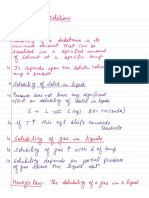 Solutions
Solubility of a substance is its
maximum amount that can be
dissolved in a specified amount
of solvent at a specific temp
It depends upon the solute, solvent
temp & product
Solubility of solid in liquid
Pressure does not have any significant
effect on solubility of solid in liquid
S + L
if ↑ this eql shift towards
Products
Solubility of gas in liquids
Solubility of gas ↑ with ↓ of temp
Solubility depends on partial pressure
of gas above the liquid
Henry's law: The solubility of a gas in a liquid